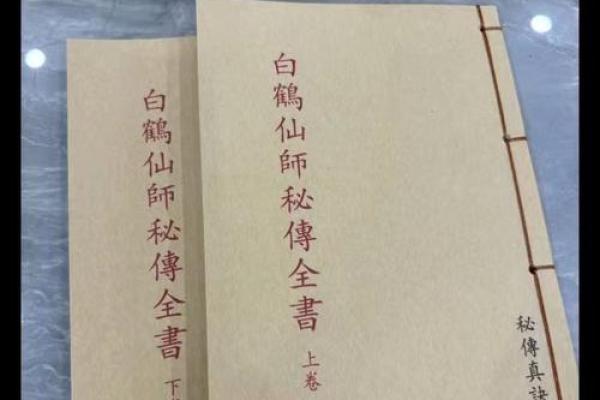 秘傳真訣
白鶴仙師秘傳全書
上卷
白鶴仙師秘傳全書
下